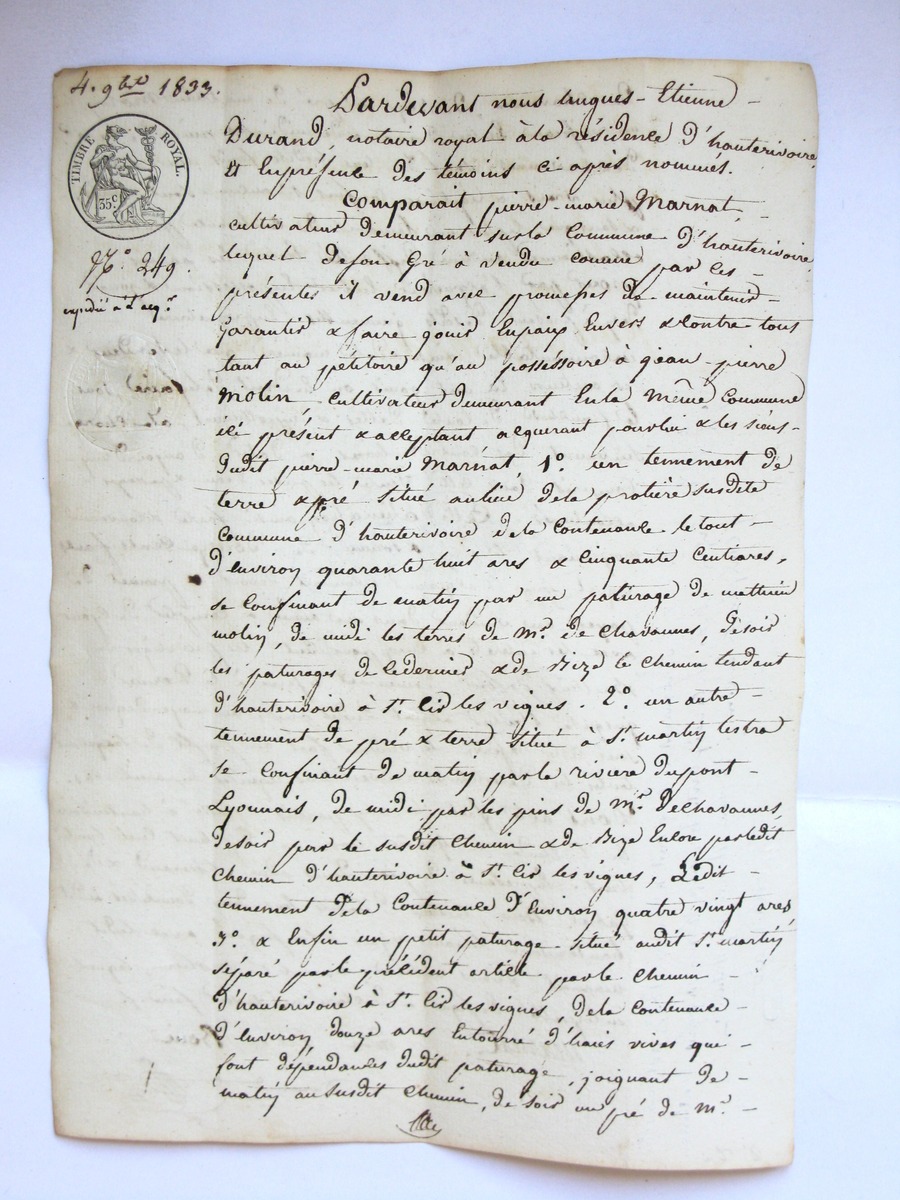 4. 9bre 1833.
TIMBRE ROYAL.
35c.
No. 249.
expédié à l'acqr.
Pardevant nous hugues-Etienne -
Durand, notaire royal à la résidence d'hauterivoire
Et Enprésence des témoins ci après nommés.
Comparait pierre-marie Marnat,
cultivateur demeurant sur la Commune d'hauterivoire,
lequel de son Gré à vendu comme par ces -
présentes il vend avec promesses de maintenir -
Garantir & faire jouir Enpaix Envers & Contre tous
tant au pétitoire qu'au posséssoire à gean-pierre
Molin cultivateur demeurant En la Même Commune
ici présent & acceptant, acquerant pour lui & les siens -
dudit pierre-marie Marnat, 1o. un tennement de
terre & pré situé au lieu de la protière susdite
Commune d'hauterivoire de la Contenance le tout -
d'Environ quarante huit ares & Cinquante Centiares,
se Confinant de matin par un paturage de mathieu
molin, de midi les terres de Mr. de Chavannes, de soir
les paturages de ce dernier & de Bize le Chemin tendant
d'hauterivoire à St. Cir les vignes. 2o. un autre -
tennement de pré & terre situé à St. martin lestra
se Confinant de matin par la rivière du pont -
Lyonnais, de midi par les pins de Mr. de Chavannes,
de soir par le susdit Chemin & de Bize Encore par ledit
Chemin d'hauterivoire à St. Cir les vignes, Ledit -
tennement de la Contenance d'Environ quatre vingt ares
3o. & Enfin un petit paturage situé audit St. martin
séparé par le précédent article par le Chemin -
d'hauterivoire à St. Cir les vignes, de la Contenance -
d'Environ douze ares Entourré d'haies vives qui -
font dépendances dudit paturage, joignant de -
matin au susdit Chemin, de soir un pré de Mr. -